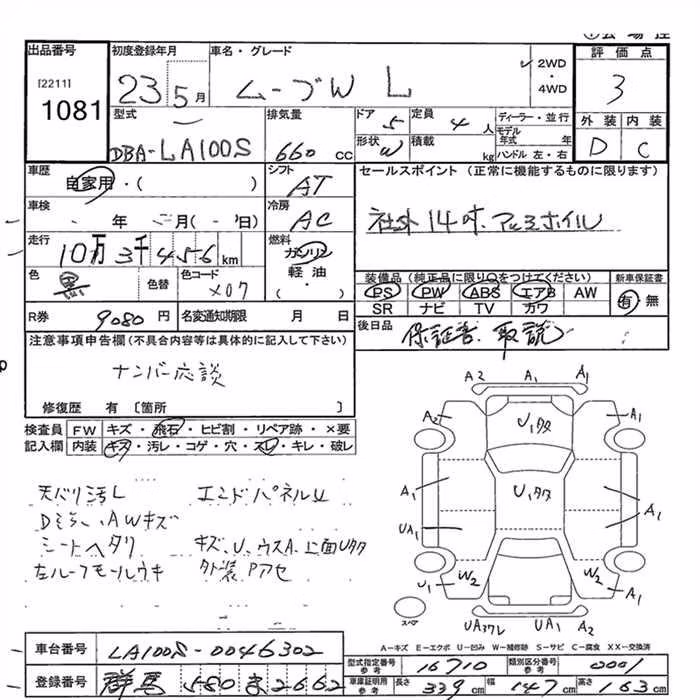 出品番号
[2211]
1081
初度登録年月
23 5月
車名・グレード
ムーブW L
2WD
・
4WD
評価点
3
外装 内装
D C
型式
DBA-LA100S
排気量
660 cc
ドア 5
定員 4人
形状 W
積載 kg
ディーラー・並行
モデル年式 年
ハンドル 左・右
車歴
自家用・( )
シフト
AT
セールスポイント (正常に機能するものに限ります)
社外14吋アルミホイル
車検
年 月( 日)
冷房
AC
走行
10万3千456km
燃料
ガソリン
軽油
( ・ )
色
黒
色替
色コード
X07
装備品 (純正品に限り○をつけてください)
PS PW ABS エアB AW
SR ナビ TV カワ
新車保証書
有 無
R券 9080円
名変通知期限 月 日
後日品
保証書、取説
注意事項申告欄(不具合内容等は具体的に記入して下さい)
ナンバー応談
修復歴 有 〔箇所 〕
検査員 FW キズ・飛石・ヒビ割・リペア跡・×要
記入欄 内装 キズ・汚レ・コゲ・穴・スレ・キレ・破レ
天バリ汚レ エンドパネルU
AWキズ
シートヘタリ キズ、U、ウスA、上面Uタタ
左ルーフモールウキ 外装Pアセ
A2 A1 A1
A2 U1タタ A1
A1 U1タタ A1
UA1 A1
U1 W2 W2 A1
スペア
UA3ワレ UA1 A1
A−キズ E−エクボ U−凹み W−補修跡 S−サビ C−腐食 XX−交換済
車台番号 LA100S-0046302
型式指定番号 参考 16710
類別区分番号 参考 0001
登録番号 群馬 580 ま 2662
車庫証明用 参考 長さ 339cm 幅 147cm 高さ 163cm